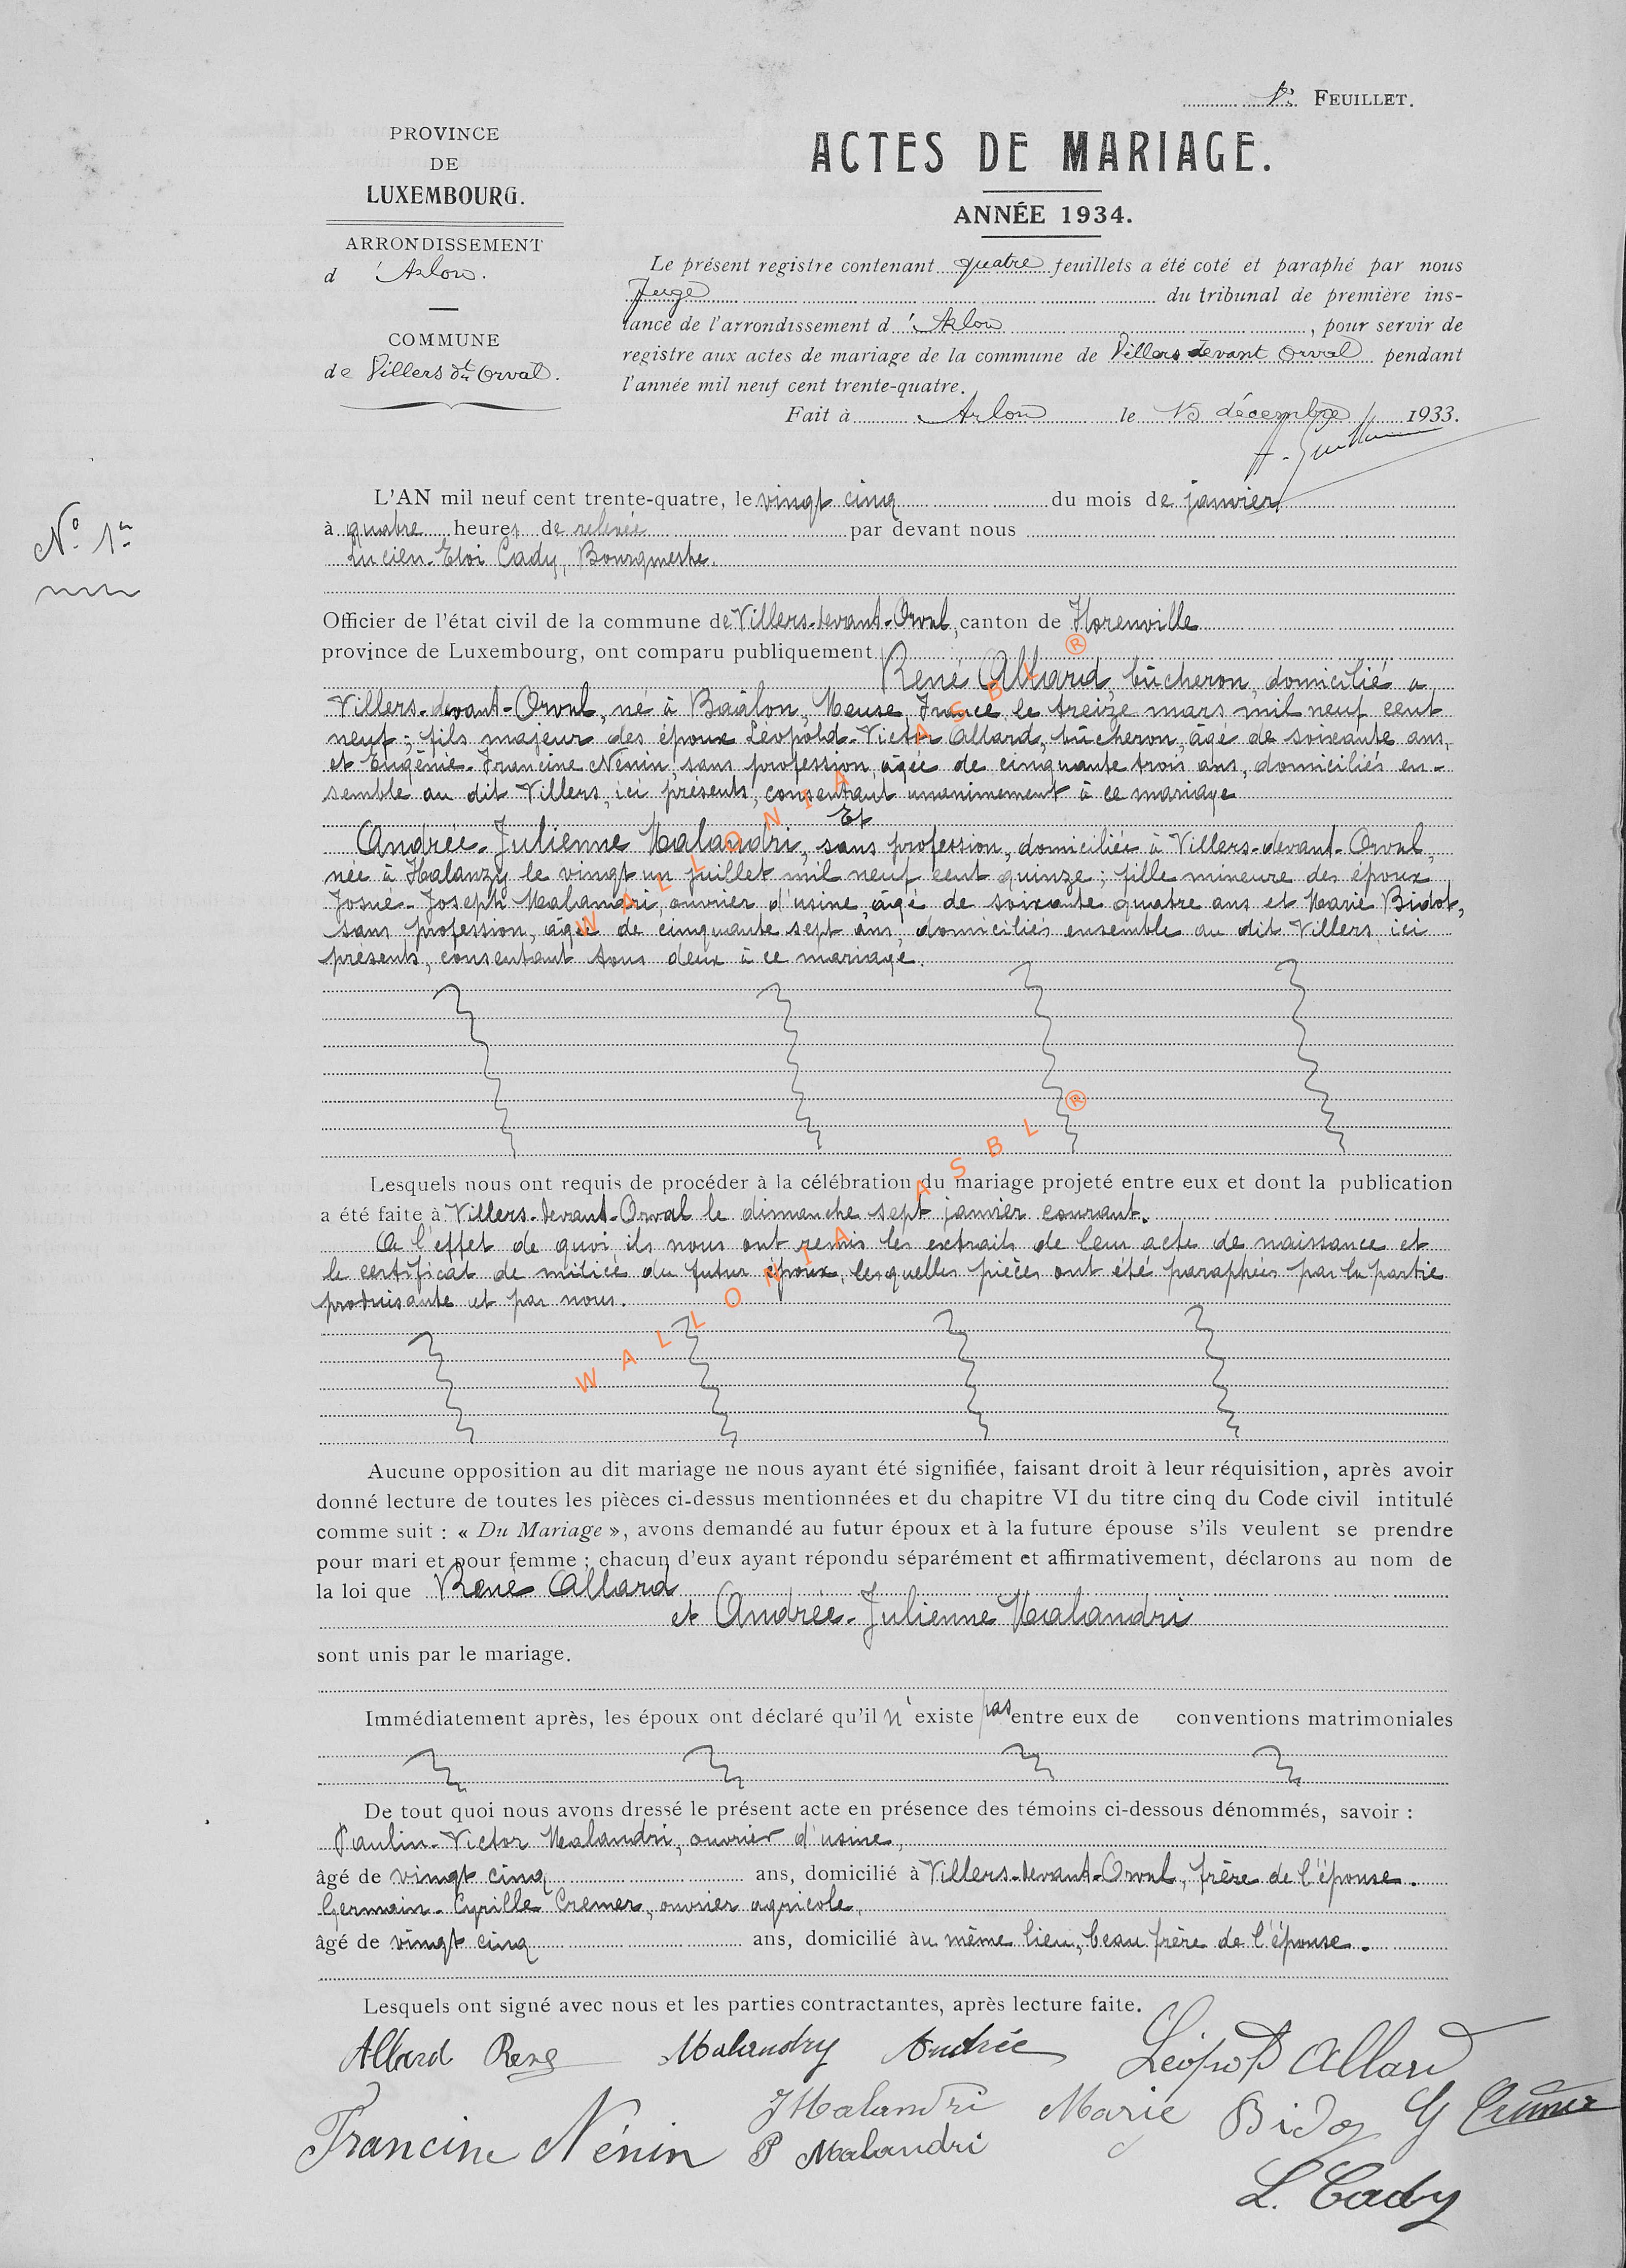 1er FEUILLET.
PROVINCE
DE
LUXEMBOURG.
ARRONDISSEMENT
d'Arlon.
COMMUNE
de Villers dt Orval.
ACTES DE MARIAGE.
ANNÉE 1934.
Le présent registre contenant quatre feuillets a été coté et paraphé par nous
Juge du tribunal de première ins-
tance de l'arrondissement d'Arlon, pour servir de
registre aux actes de mariage de la commune de Villers devant Orval pendant
l'année mil neuf cent trente-quatre.
Fait à Arlon le 15 décembre 1933.
N° 1er
L'AN mil neuf cent trente-quatre, le vingt cinq du mois de janvier
à quatre heures de relevée par devant nous
Lucien-Eloi Cady, Bourgmestre.
Officier de l'état civil de la commune de Villers-devant-Orval, canton de Florenville
province de Luxembourg, ont comparu publiquement
René Allard, bûcheron, domicilié à
Villers-devant-Orval, né à Baâlon, Meuse, France, le treize mars mil neuf cent
neuf; fils majeur des époux Léopold-Victor Allard, bûcheron, âgé de soixante ans,
et Eugénie-Francine Nénin, sans profession, âgée de cinquante trois ans, domiciliés en-
semble au dit Villers, ici présents, consentant unanimement à ce mariage
Et
Andrée-Julienne Malandri, sans profession, domiciliée à Villers-devant-Orval,
née à Halanzy le vingt un juillet mil neuf cent quinze; fille mineure des époux
Josué-Joseph Malandri, ouvrier d'usine, âgé de soixante quatre ans et Marie Bidot,
sans profession, âgée de cinquante sept ans, domiciliés ensemble au dit Villers, ici
présents, consentant tous deux à ce mariage.
Lesquels nous ont requis de procéder à la célébration du mariage projeté entre eux et dont la publication
a été faite à Villers-devant-Orval le dimanche sept janvier courant.
A l'effet de quoi ils nous ont remis les extraits de leur acte de naissance et
le certificat de milice du futur époux, lesquelles pièces ont été paraphées par la partie
produisante et par nous.
Aucune opposition au dit mariage ne nous ayant été signifiée, faisant droit à leur réquisition, après avoir
donné lecture de toutes les pièces ci-dessus mentionnées et du chapitre VI du titre cinq du Code civil intitulé
comme suit : « Du Mariage », avons demandé au futur époux et à la future épouse s'ils veulent se prendre
pour mari et pour femme ; chacun d'eux ayant répondu séparément et affirmativement, déclarons au nom de
la loi que René Allard
et Andrée-Julienne Malandri
sont unis par le mariage.
Immédiatement après, les époux ont déclaré qu'il n'existe pas entre eux de conventions matrimoniales
De tout quoi nous avons dressé le présent acte en présence des témoins ci-dessous dénommés, savoir :
Paulin-Victor Malandri, ouvrier d'usine,
âgé de vingt cinq ans, domicilié à Villers-devant-Orval, frère de l'épouse.
Germain-Cyrille Cremer, ouvrier agricole,
âgé de vingt cinq ans, domicilié au même lieu, beau frère de l'épouse.
Lesquels ont signé avec nous et les parties contractantes, après lecture faite.
Allard René Malandry Andrée Léopold Allard
Francine Nénin J Malandri Marie Bidot G Cremer
P Malandri
L. Cady
WALLONIA ASBL ®
WALLONIA ASBL ®